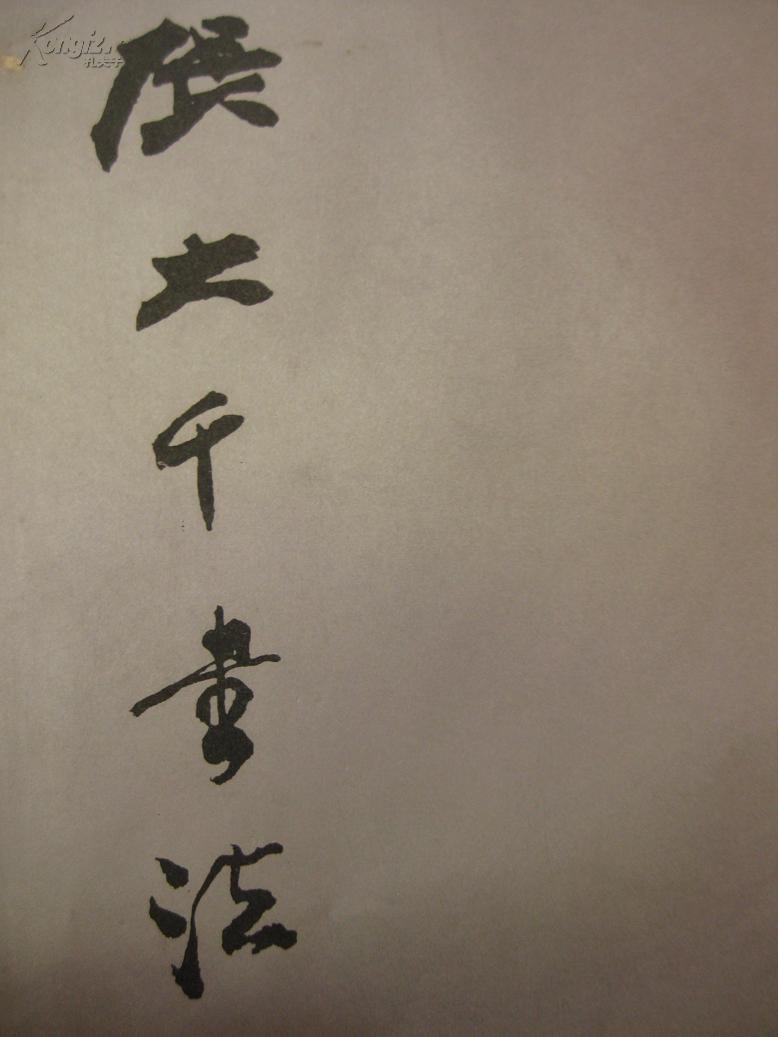 Kongfz.
孔夫子
張大千書法